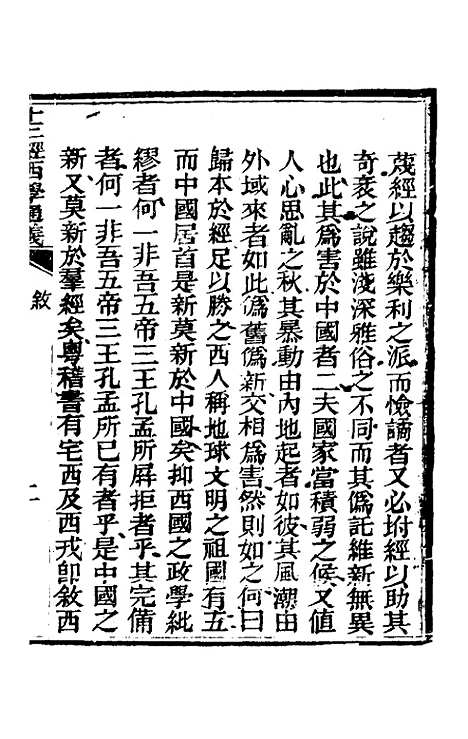 蔑經以趨於樂利之派而憸譎者又必坿經以助其
奇衺之說雖淺深雅俗之不同而其僞託維新無異
也此其爲害於中國者二夫國家當積弱之候又値
人心思亂之秋其暴動由內地起者如彼其風潮由
外域來者如此僞舊僞新交相爲害然則如之何曰
歸本於經足以勝之西人稱地球文明之祖國有五
而中國居首是新莫新於中國矣抑西國之政學紕
繆者何一非吾五帝三王孔孟所屏拒者乎其完備
者何一非吾五帝三王孔孟所已有者乎是中國之
新又莫新於羣經矣粵稽書有宅西及西戎卽敘西
十三經西學通義 敘 二